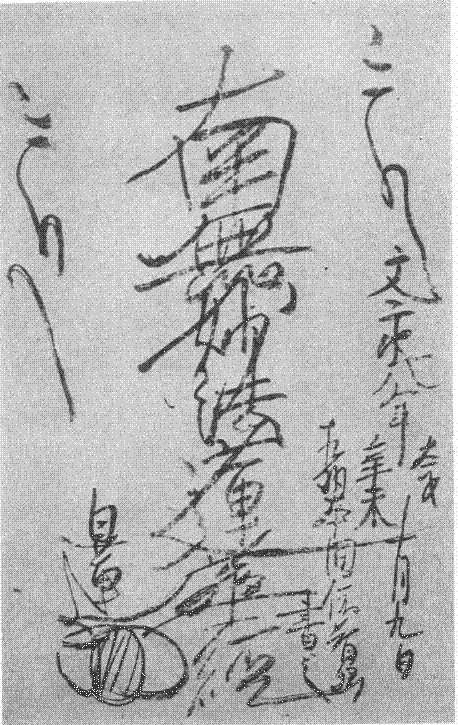 文永八年
太才
辛未
十月九日
相州本間依智郷
書之
南無妙法蓮華経
日蓮